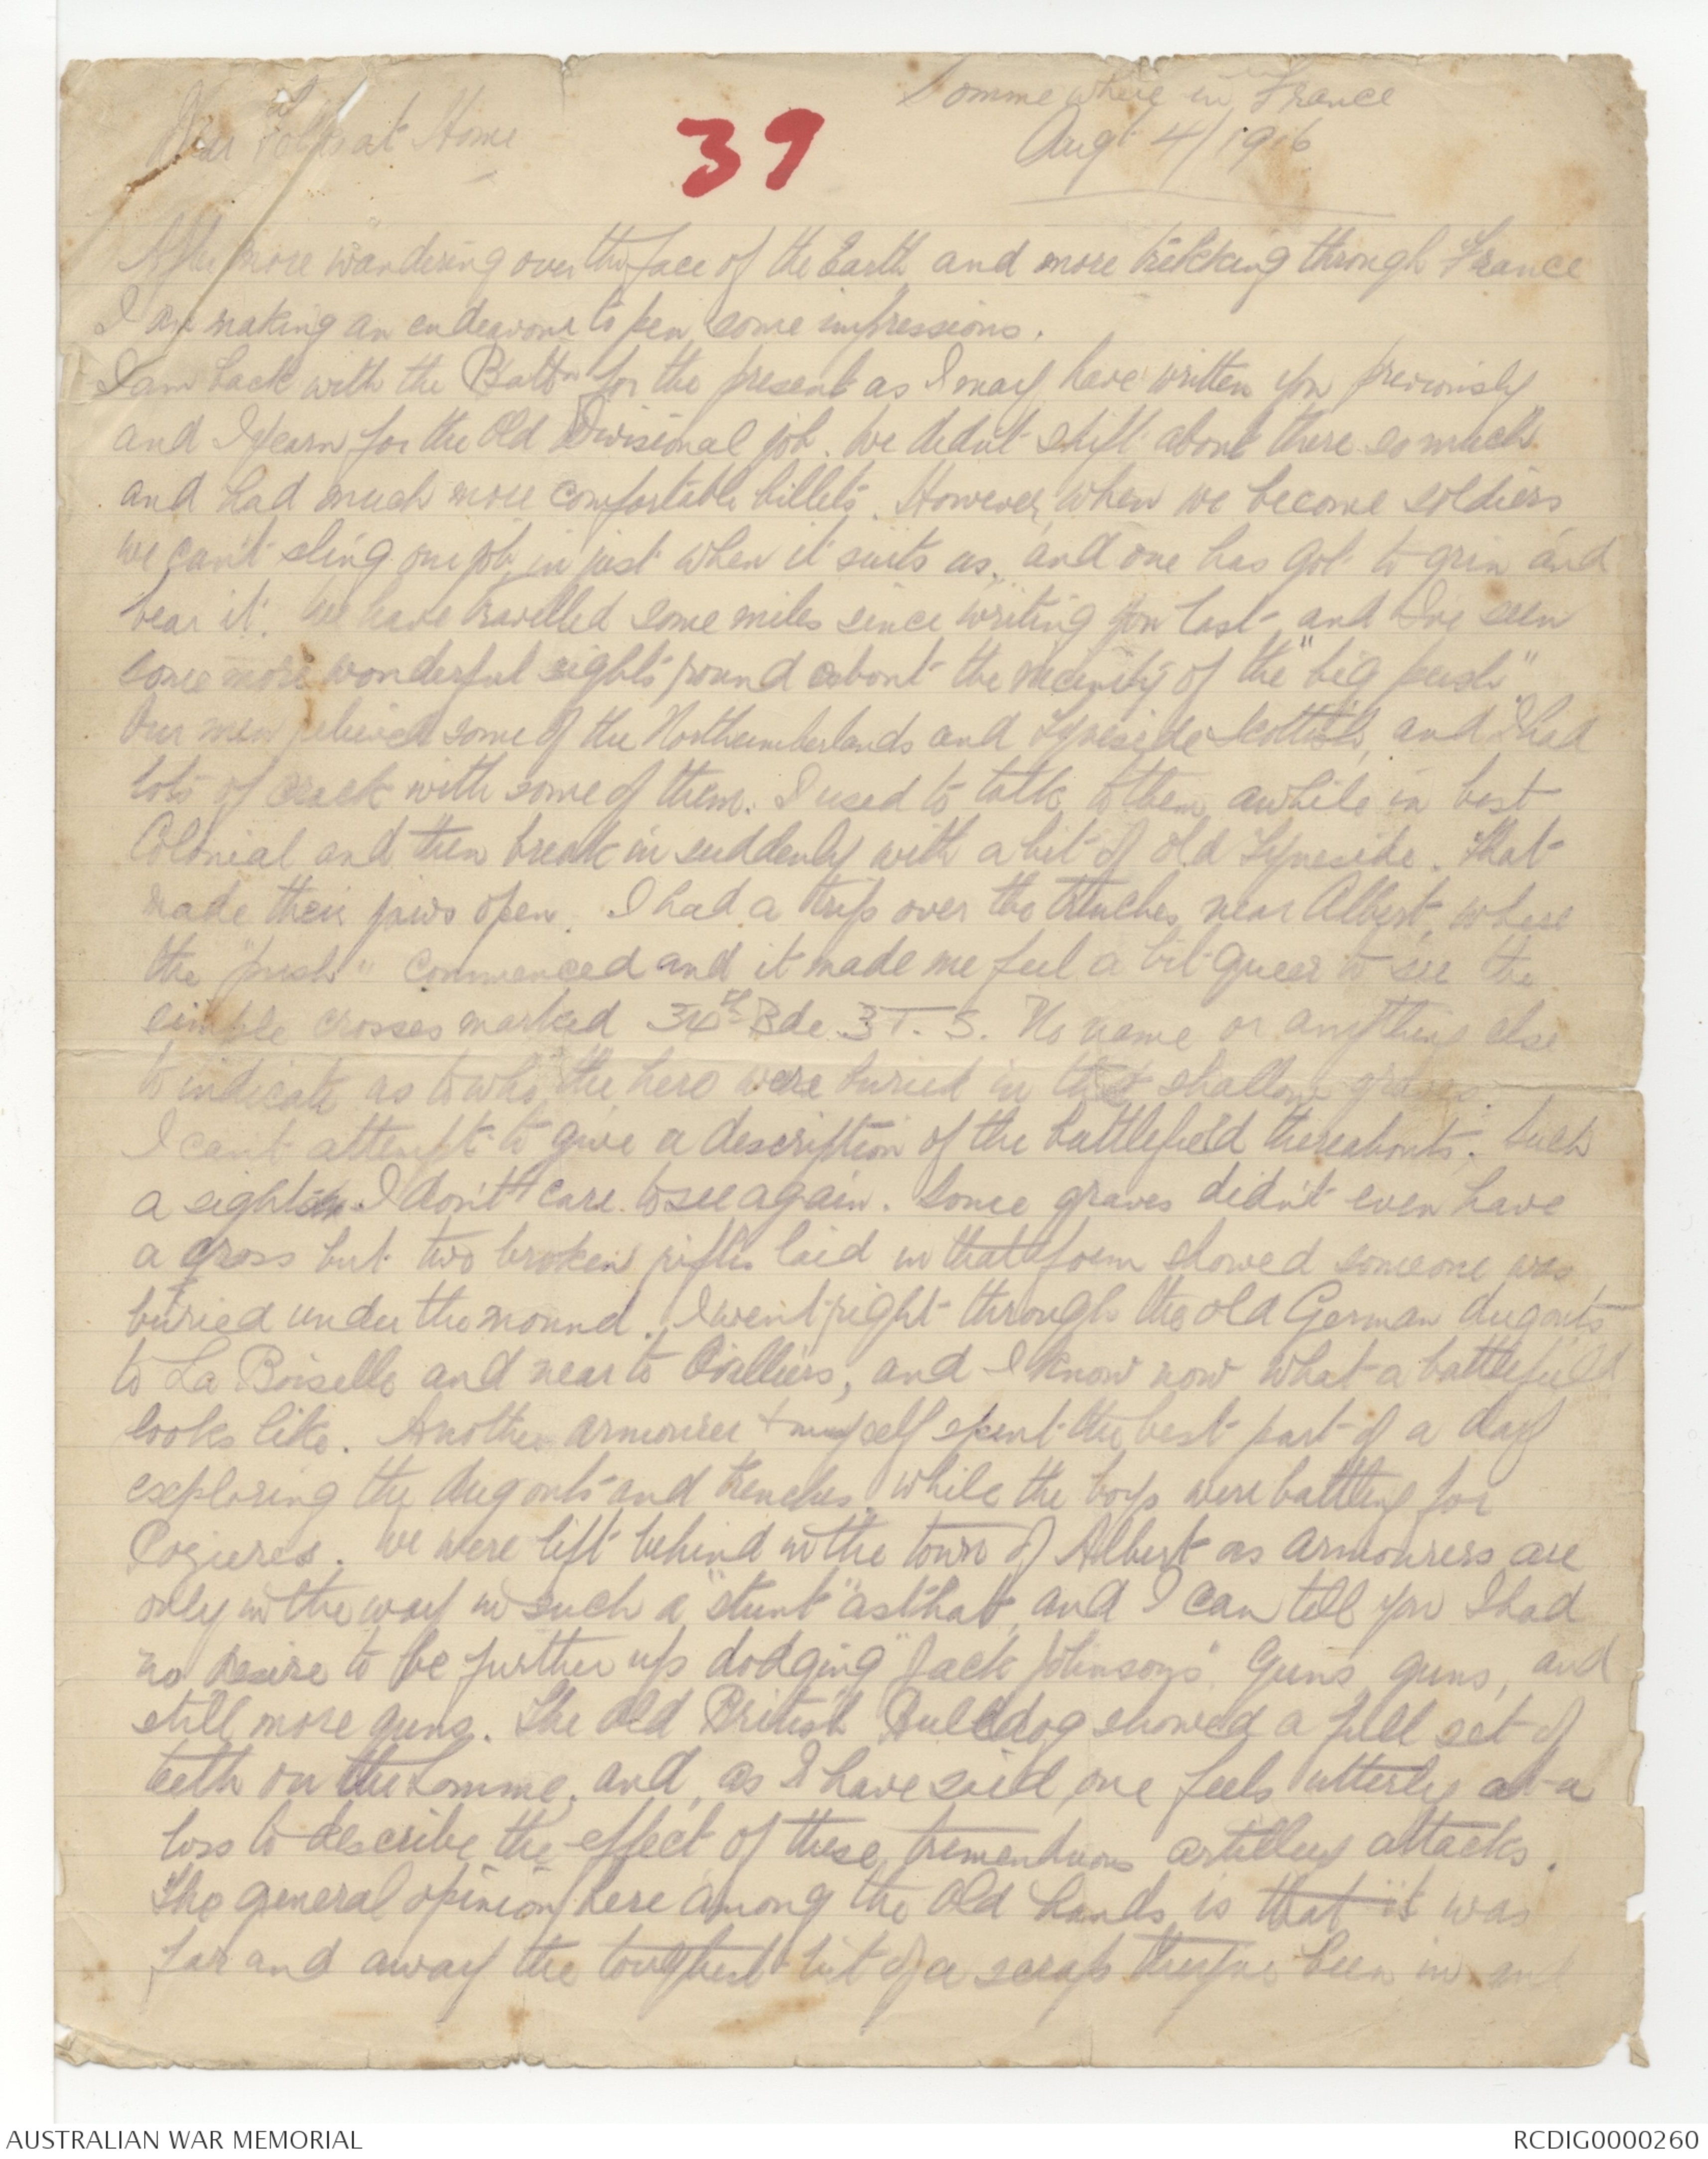 Somme where in France
Dear Folks at Home
39
Augt 4/1916
After more wandering over the face of the Earth and more trekking through France
I am making an endeavour to pen some impressions.
I am back with the Battn for the present as I may have written you previously
and I yearn for the Old Divisional job. We didn't shift about there so much
and had much more comfortable billets. However, when we become soldiers
we can't sling our job in just when it suits us, and one has got to grin and
bear it. We have travelled some miles since writing you last and I've seen
some more wonderful sights round about the vicinity of the "big push"
Our men relieved some of the Northumberlands and Tyneside Scottish, and I had
lots of crack with some of them. I used to talk to them awhile in best
Colonial and then break in suddenly with a bit of old Tyneside. That
made their jaws open. I had a trip over the trenches near Albert, where
the "push" commenced and it made me feel a bit queer to see the
simple crosses marked 34th Bde T. S. No name or anything else
to indicate as to who the hero were buried in the shallow graves.
I can't attempt to give a description of the battlefield thereabouts. Such
a sight I don't care to see again. Some graves didn't even have
a cross but two broken rifles laid in that form showed someone was
buried under the mound. I went right through the old German dugouts
to La Boiselle and near to Ovilliers, and I know now what a battlefield
looks like. Another armourer + myself spent the best part of a day
exploring the dugouts and trenches while the boys were battling for
Pozieres. We were left behind in the town of Albert as armourers are
only in the way in such a "stunt" as that, and I can tell you I had
no desire to be further up dodging "Jack Johnsons" Guns, guns, and
still more guns. The Old British Bulldog showed a full set of
teeth on the Somme, and, as I have said, one feels utterly at a
loss to describe the effect of these tremenduous artillery attacks.
The general opinion here among the old hands is that it was
far and away the toughest bit of a scrap they've been in and
AUSTRALIAN WAR MEMORIAL
RCDIG0000260